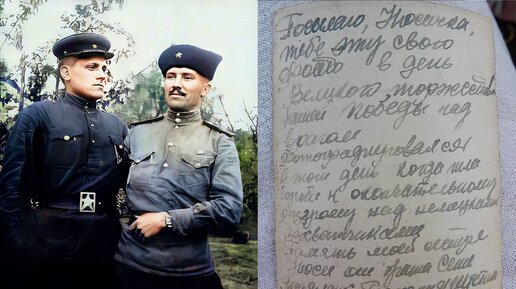 Посылаю, Тосичка,
тебе эту свою
фото в день
Великого торжества
нашей победы над
врагом
Фотографировался
в тот день когда шла
борьба к окончательному
разгрому над немецкими
захватчиками
Память моей сестре
Тоси от брата Сени